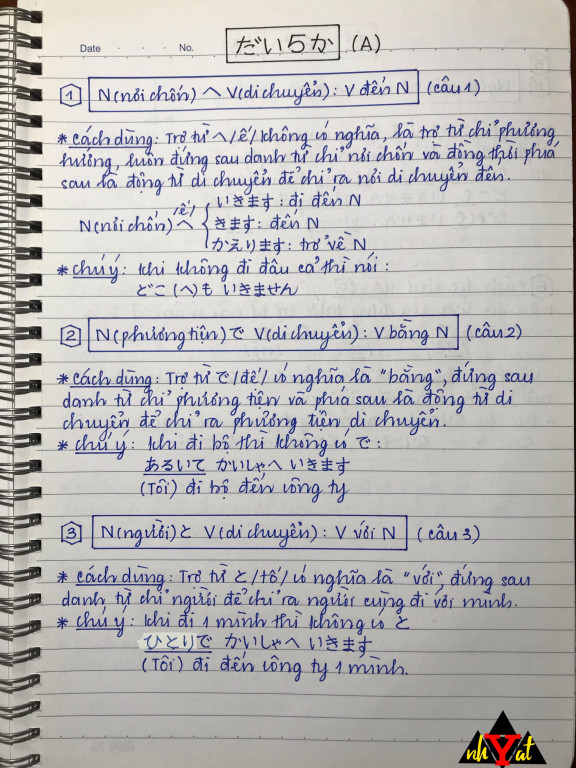 Date . . . No. だい5か (A)
1 N(nơi chốn) へ V(di chuyển): V đến N (câu 1)
* Cách dùng: Trợ từ へ/ế/ không có nghĩa, là trợ từ chỉ phương
hướng, luôn đứng sau danh từ chỉ nơi chốn và đồng thời phía
sau là động từ di chuyển để chỉ ra nơi di chuyển đến.
/ế/
いきます: đi đến N
N(nơi chốn) へ { きます: đến N
かえります: trở về N
* Chú ý: Khi không đi đâu cả thì nói:
どこ (へ) も いきません
2 N(phương tiện) で V(di chuyển): V bằng N (câu 2)
* Cách dùng: Trợ từ で/đế/ có nghĩa là "bằng", đứng sau
danh từ chỉ phương tiện và phía sau là động từ di
chuyển để chỉ ra phương tiện di chuyển.
* Chú ý: Khi đi bộ thì không có で:
あるいて かいしゃへ いきます
(Tôi) đi bộ đến công ty
3 N(người) と V(di chuyển): V với N (câu 3)
* Cách dùng: Trợ từ と/tố/ có nghĩa là "với", đứng sau
danh từ chỉ người để chỉ ra người cùng đi với mình.
* Chú ý: Khi đi 1 mình thì không có と
ひとりで かいしゃへ いきます
(Tôi) đi đến công ty 1 mình.
nh Y at